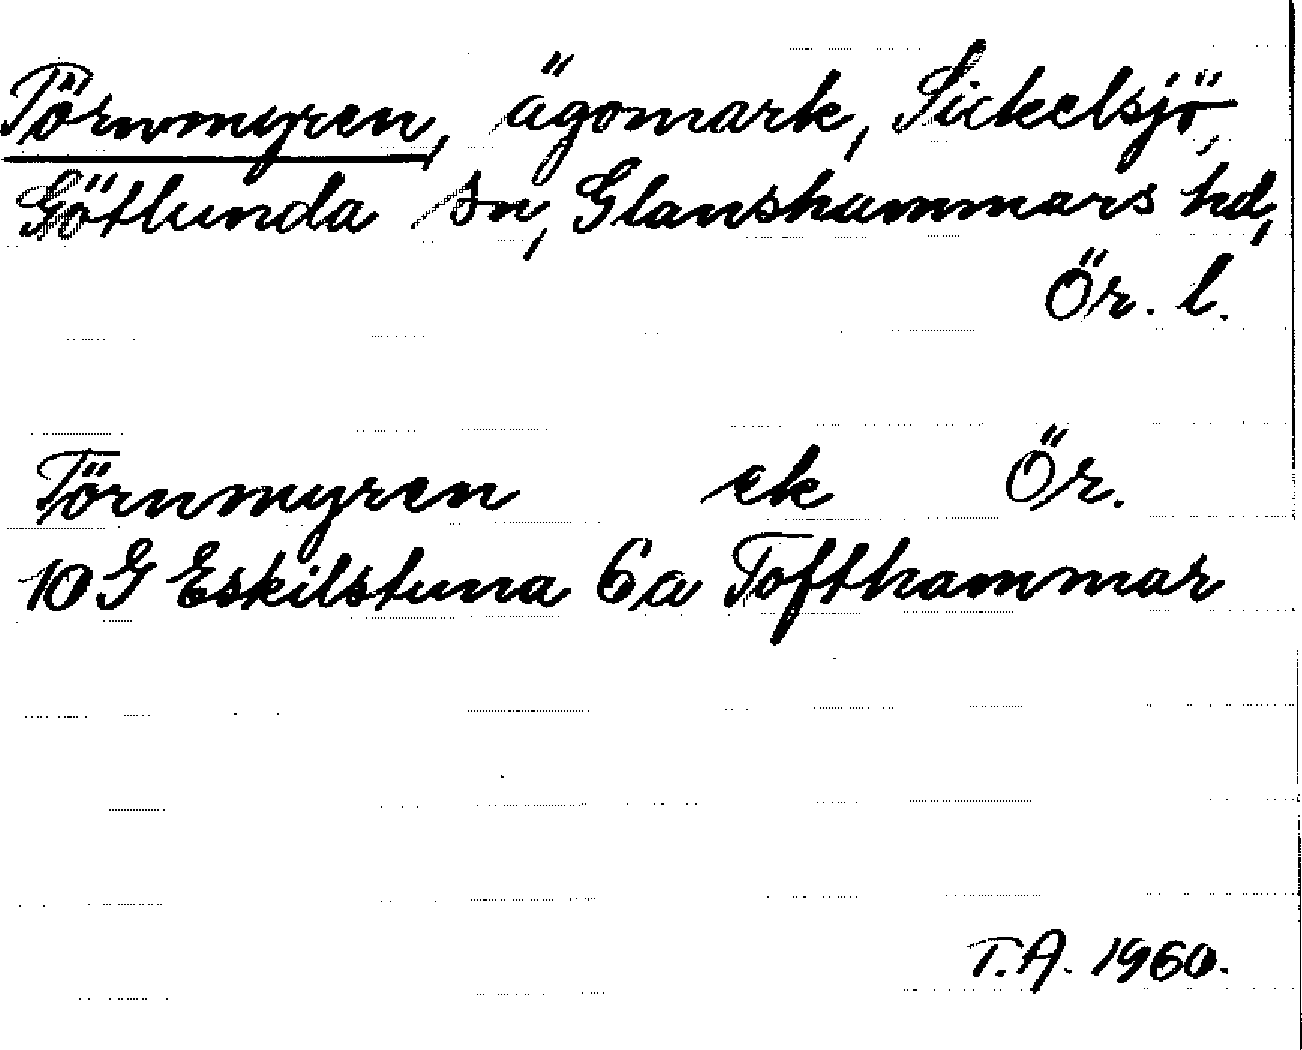 Törnmyren, ägomark, Sickelsjö,
Götlunda sn, Glanshammars hd,
Ör. l.
Törnmyren ek Ör.
10 G Eskilstuna 6a Tofthammar
T.A. 1960.